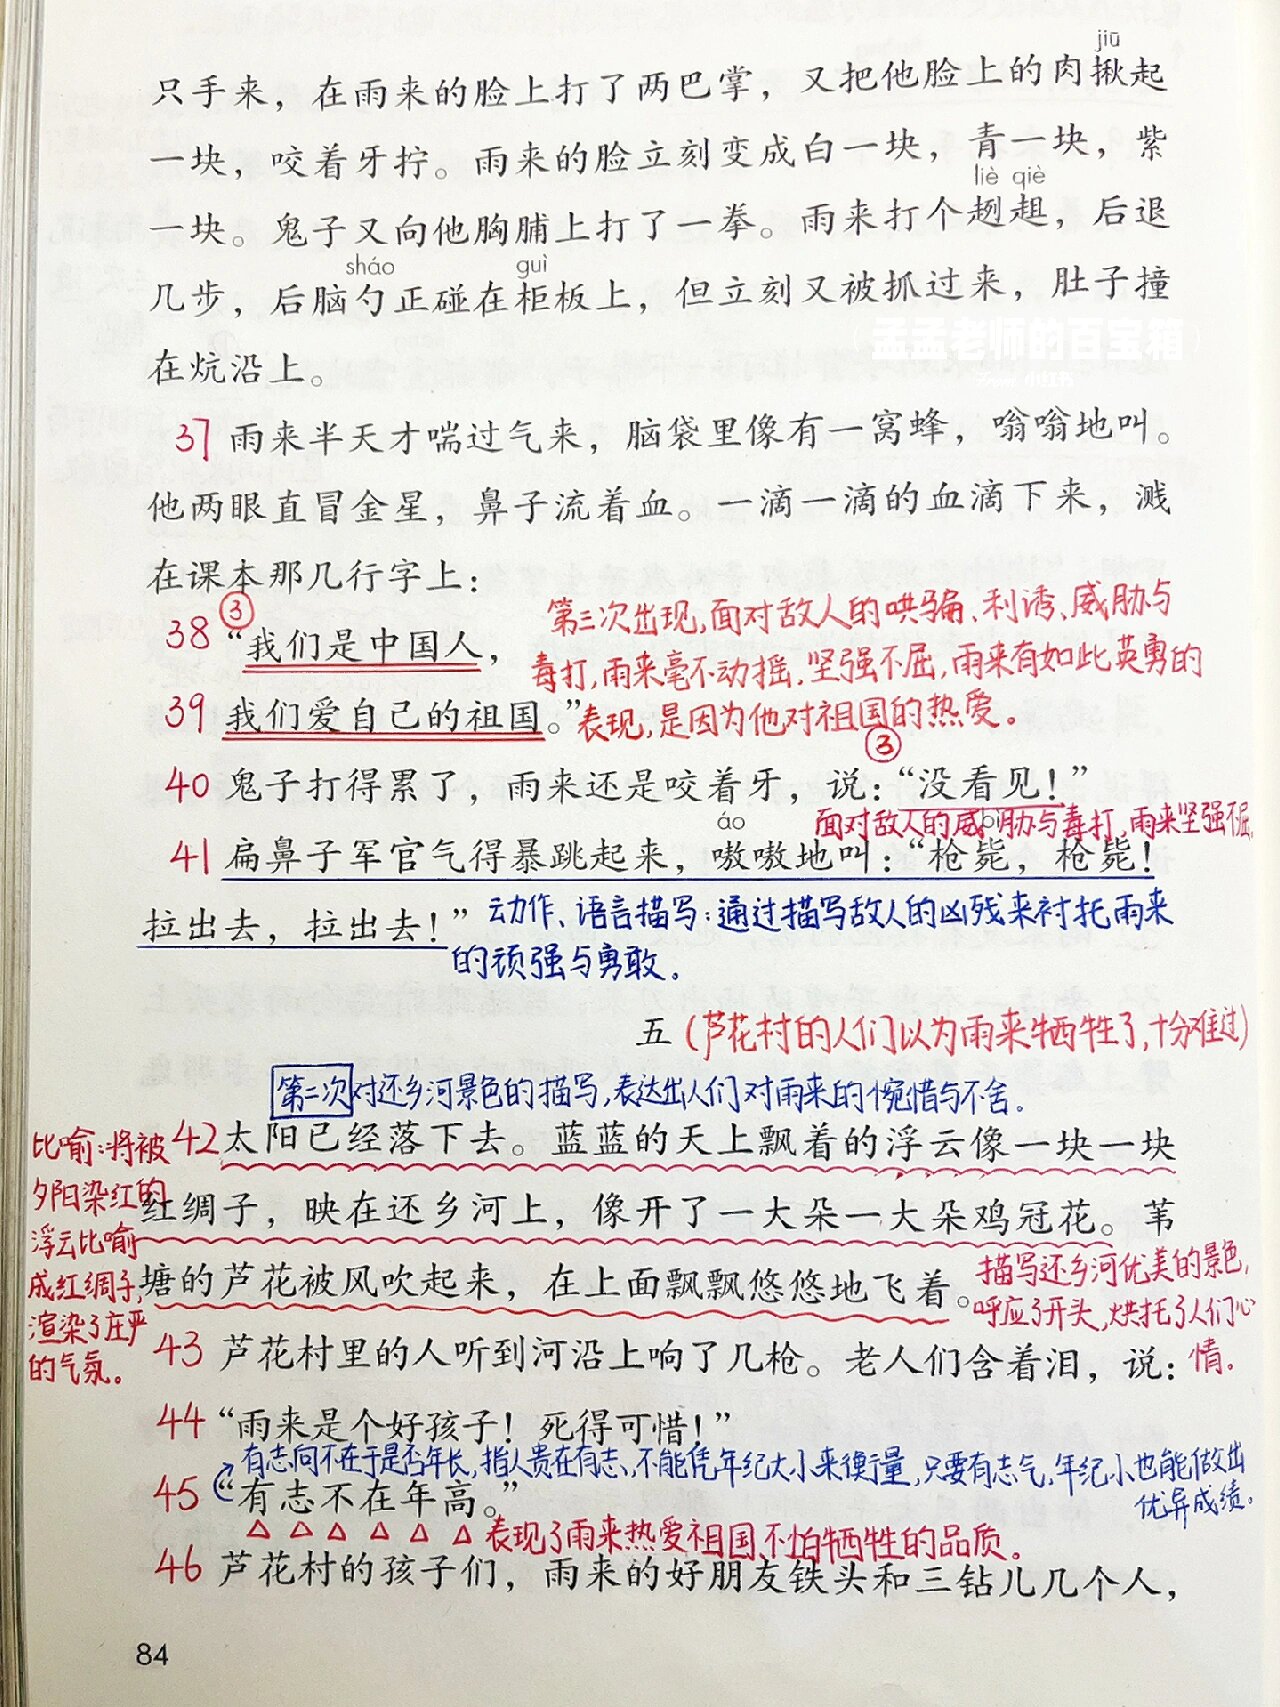 jiū
只手来，在雨来的脸上打了两巴掌，又把他脸上的肉揪起
一块，咬着牙拧。雨来的脸立刻变成白一块，青一块，紫
liè qiè
一块。鬼子又向他胸脯上打了一拳。雨来打个趔趄，后退
sháo guì
几步，后脑勺正碰在柜板上，但立刻又被抓过来，肚子撞
孟孟老师的百宝箱
在炕沿上。
37 雨来半天才喘过气来，脑袋里像有一窝蜂，嗡嗡地叫。
他两眼直冒金星，鼻子流着血。一滴一滴的血滴下来，溅
在课本那几行字上：
③
第三次出现，面对敌人的哄骗、利诱、威胁与
38 “我们是中国人，
毒打，雨来毫不动摇，坚强不屈，雨来有如此英勇的
39 我们爱自己的祖国。”
表现，是因为他对祖国的热爱。
③
40 鬼子打得累了，雨来还是咬着牙，说：“没看见！”
áo bì
面对敌人的威胁与毒打，雨来坚强不屈
41 扁鼻子军官气得暴跳起来，嗷嗷地叫：“枪毙，枪毙！
拉出去，拉出去！”
动作、语言描写：通过描写敌人的凶残来衬托雨来
的顽强与勇敢。
五 (芦花村的人们以为雨来牺牲了，十分难过)
第二次对还乡河景色的描写，表达出人们对雨来的惋惜与不舍。
42 太阳已经落下去。蓝蓝的天上飘着的浮云像一块一块
红绸子，映在还乡河上，像开了一大朵一大朵鸡冠花。苇
塘的芦花被风吹起来，在上面飘飘悠悠地飞着。
比喻：将被
夕阳染红的
浮云比喻
成红绸子，
渲染了庄严
的气氛。
描写还乡河优美的景色，
呼应了开头，烘托了人们心
情。
43 芦花村里的人听到河沿上响了几枪。老人们含着泪，说：
44 “雨来是个好孩子！死得可惜！”
有志向不在于是否年长，指人贵在有志，不能凭年纪大小来衡量，只要有志气，年纪小也能做出
优异成绩。
45 “有志不在年高。”
表现了雨来热爱祖国、不怕牺牲的品质。
46 芦花村的孩子们，雨来的好朋友铁头和三钻儿几个人，
84